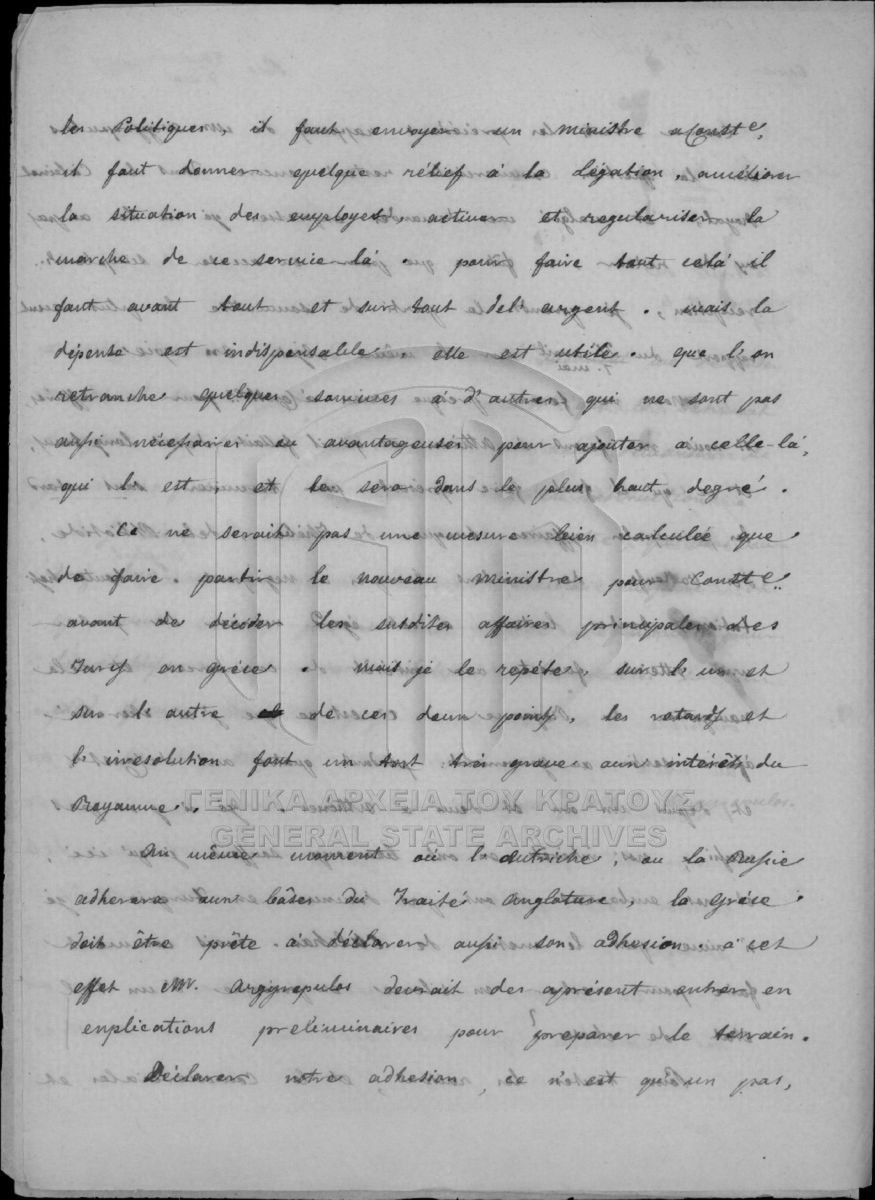 les Politiques, il faut envoyer un Ministre a Const^e,
il faut donner quelque rélief á la légation, améliorer
la situation des employest, activer et regulariser la
marche de ce service-lá. pour faire tout celá il
faut avant tout et sur tout del'argent., mais la
dépense est indispensable, elle est utile. que l'on
retranche quelques sommes á d'autres qui ne sont pas
aussi nécessaires ou avantageuses pour ajouter á celle-lá,
qui l'est, et le sera dans le plus haut degré.
Ce ne serait pas une mesure bien calculée que
de faire partir le nouveau Ministre pour Const^e..
avant de décider les susdites affaires principales des
Turcs en grèce. mais je le repéte, sur l'un et
sur l'autre de ces deux points, les retards et
l'irresolution font un tort trés grave aux intérêts du
Royaume.
ΓΕΝΙΚΑ ΑΡΧΕΙΑ ΤΟΥ ΚΡΑΤΟΥΣ
GENERAL STATE ARCHIVES
Au même moment où l'Autriche, ou la Russie
adherera aux báses du Traité Angloturc, la Gréce
doit être prête á déclarer aussi son adhesion. á cet
effet Mr. Argyropulos devrait des aprésent entrer en
explications preliminaires pour preparer le terrain.
Déclarer notre adhesion, ce n'est qu'un pas,